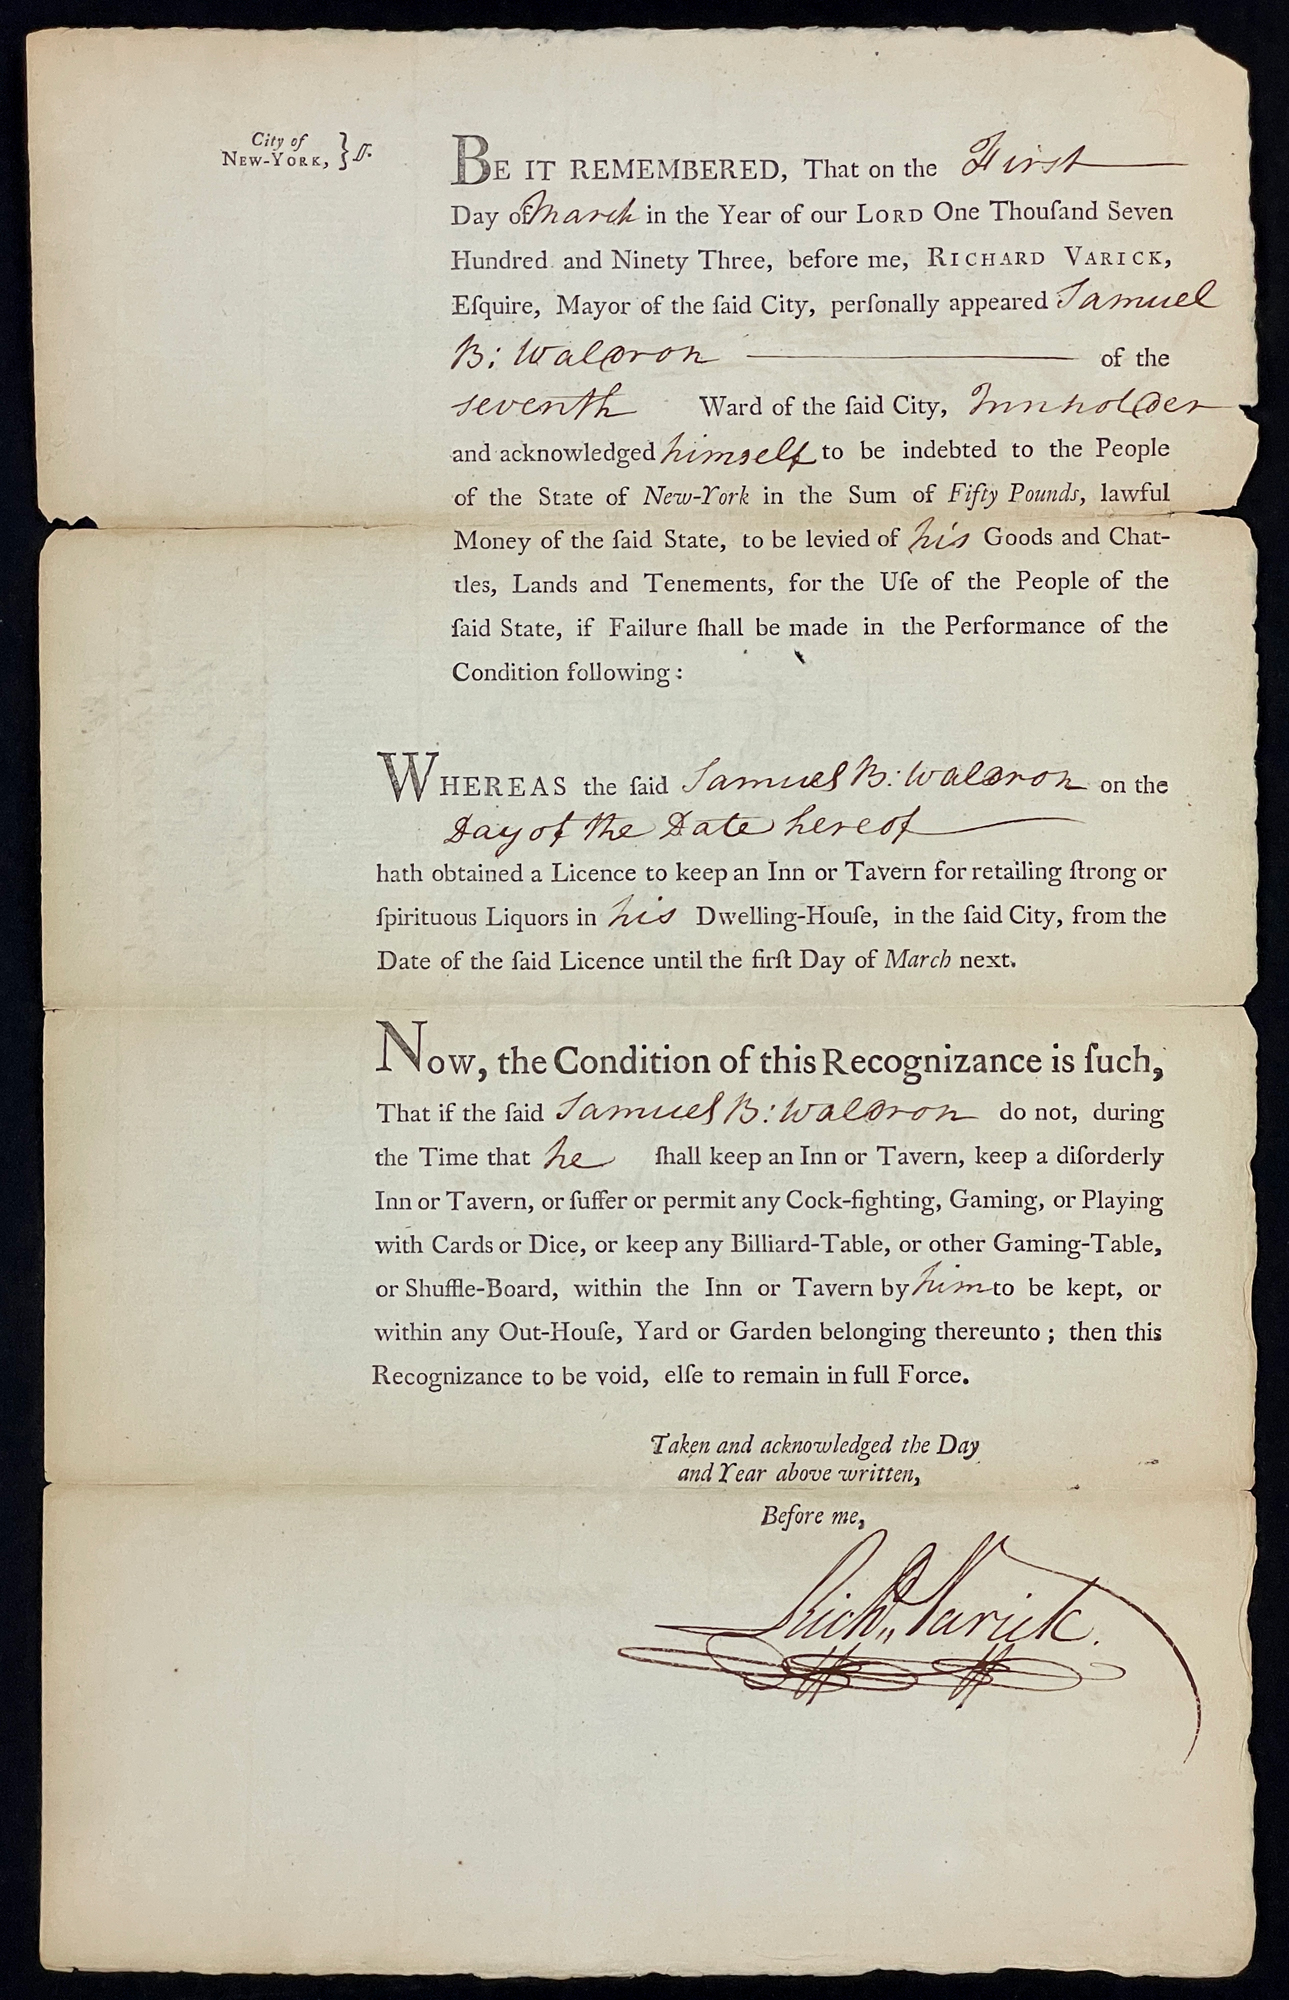 City of
NEW-YORK, } ſſ.
BE IT REMEMBERED, That on the First
Day of March in the Year of our LORD One Thouſand Seven
Hundred and Ninety Three, before me, RICHARD VARICK,
Eſquire, Mayor of the ſaid City, perſonally appeared Samuel
B: Waldron of the
seventh Ward of the ſaid City, Innholder
and acknowledged himself to be indebted to the People
of the State of New-York in the Sum of Fifty Pounds, lawful
Money of the ſaid State, to be levied of his Goods and Chat-
tles, Lands and Tenements, for the Uſe of the People of the
ſaid State, if Failure ſhall be made in the Performance of the
Condition following:
WHEREAS the ſaid Samuel B: Waldron on the
Day of the Date hereof
hath obtained a Licence to keep an Inn or Tavern for retailing ſtrong or
ſpirituous Liquors in his Dwelling-Houſe, in the ſaid City, from the
Date of the ſaid Licence until the firſt Day of March next.
NOW, the Condition of this Recognizance is ſuch,
That if the ſaid Samuel B: Waldron do not, during
the Time that he ſhall keep an Inn or Tavern, keep a diſorderly
Inn or Tavern, or ſuffer or permit any Cock-fighting, Gaming, or Playing
with Cards or Dice, or keep any Billiard-Table, or other Gaming-Table,
or Shuffle-Board, within the Inn or Tavern by him to be kept, or
within any Out-Houſe, Yard or Garden belonging thereunto; then this
Recognizance to be void, elſe to remain in full Force.
Taken and acknowledged the Day
and Year above written,
Before me,
Richd Varick.